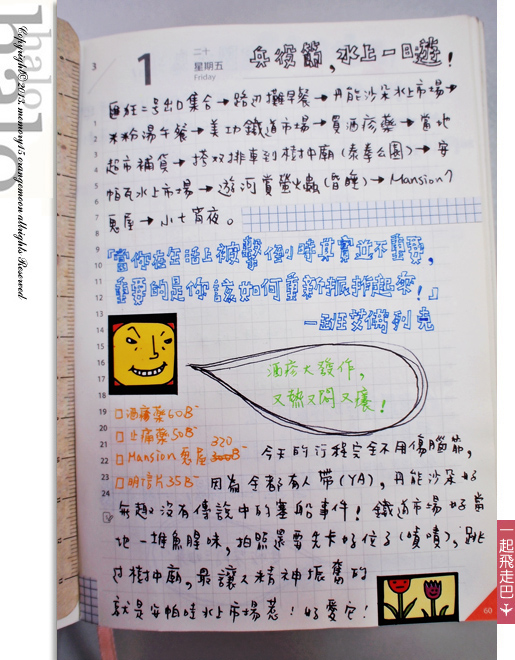 Copyright© 2015. memory15 orangemoon allrights Reserved
halo
3
1
二十
星期五
Friday
兵役節，水上一日遊！
匯狂二号出口集合→路边攤早餐→丹能沙朵水上市場→
米粉湯午餐→美功鐵道市場→買酒疹藥→當地
超市補貨→搭双排車到樹中廟(泰拳公園)→安
帕瓦水上市場→遊河賞螢火蟲(皆睡)→Mansion7
鬼屋→小七宵夜。
「當你在生活上被擊倒時其實並不重要，
重要的是你該如何重新振折起來！」
—班艾佛列克
酒疹大發作，
又熱又悶又癢！
□酒癢藥60B
□止痛藥50B
320
□Mansion鬼屋 B
□明信片35B
今天的行程完全不用傷腦筋，
因為全都有人帶(YA)，丹能沙朵好
無趣沒有傳說中的塞船事件！鐵道市場好當
地一堆魚腥味，拍照還要先卡好位子(嘖嘖)，跳
过樹中廟，最讓人精神振奮的
就是安帕哇水上市場惹！好愛它！
60
一起飛走巴